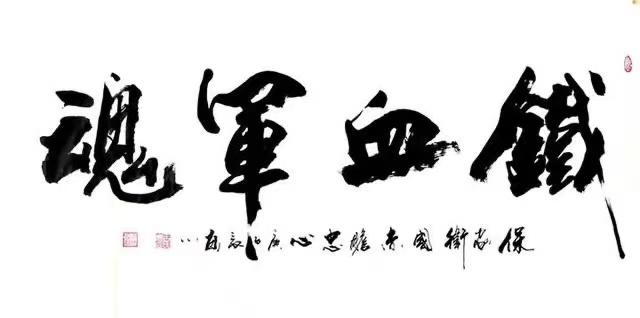 鐵血軍魂
保家衛國赤膽忠心